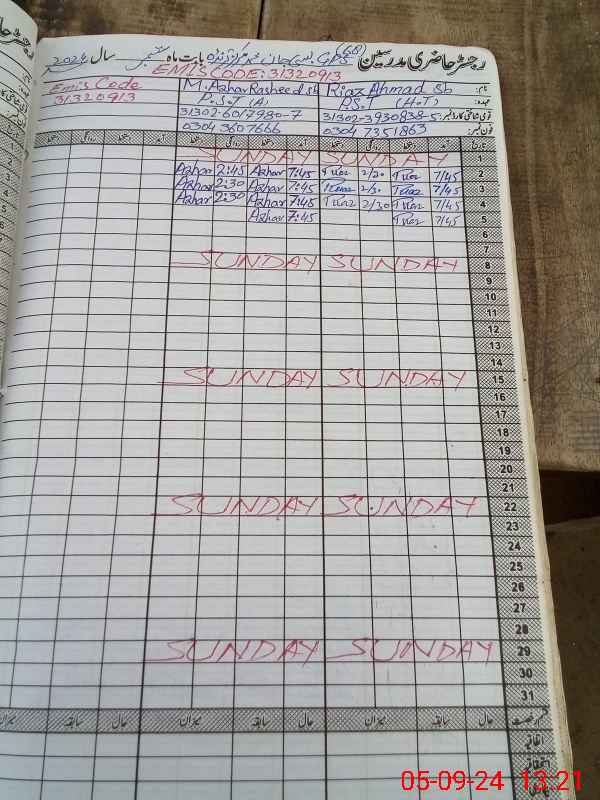 رجسٹر حاضری مدرسین GPS (68) بابت ماہ ستمبر سال 2024
EMIS CODE: 31320913
Emis Code M. Azhar Rasheed sb Riaz Ahmad Sb نام:
31320913 P.S.T (A) P.S.T (H.T) عہدہ:
31302-6017980-7 31302-3930838-5 قومی شناختی کارڈ نمبر:
0304 3607666 0304 7351863 فون نمبر:
تاریخ آمد دستخط روانگی دستخط آمد دستخط روانگی دستخط
SUNDAY SUNDAY 1
Azhar 2:45 Azhar 7:45 Riaz 2/30 Riaz 7/45 2
Azhar 2:30 Azhar 7:45 Riaz 2/30 Riaz 7/45 3
Azhar 2:30 Azhar 7:45 Riaz 2/30 Riaz 7/45 4
Azhar 7:45 Riaz 7/45 5
6
7
SUNDAY SUNDAY 8
9
10
11
12
13
14
SUNDAY SUNDAY 15
16
17
18
19
20
21
SUNDAY SUNDAY 22
23
24
25
26
27
28
SUNDAY SUNDAY 29
30
31
حال سابقہ میزان حال سابقہ میزان حال سابقہ میزان
اتفاقیہ
استحقاقیہ
05-09-24 13:21